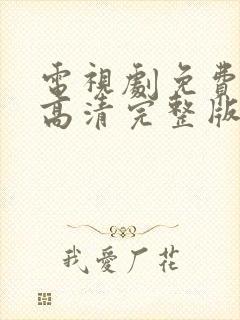 電視劇免費
高清完整版
我愛厂花